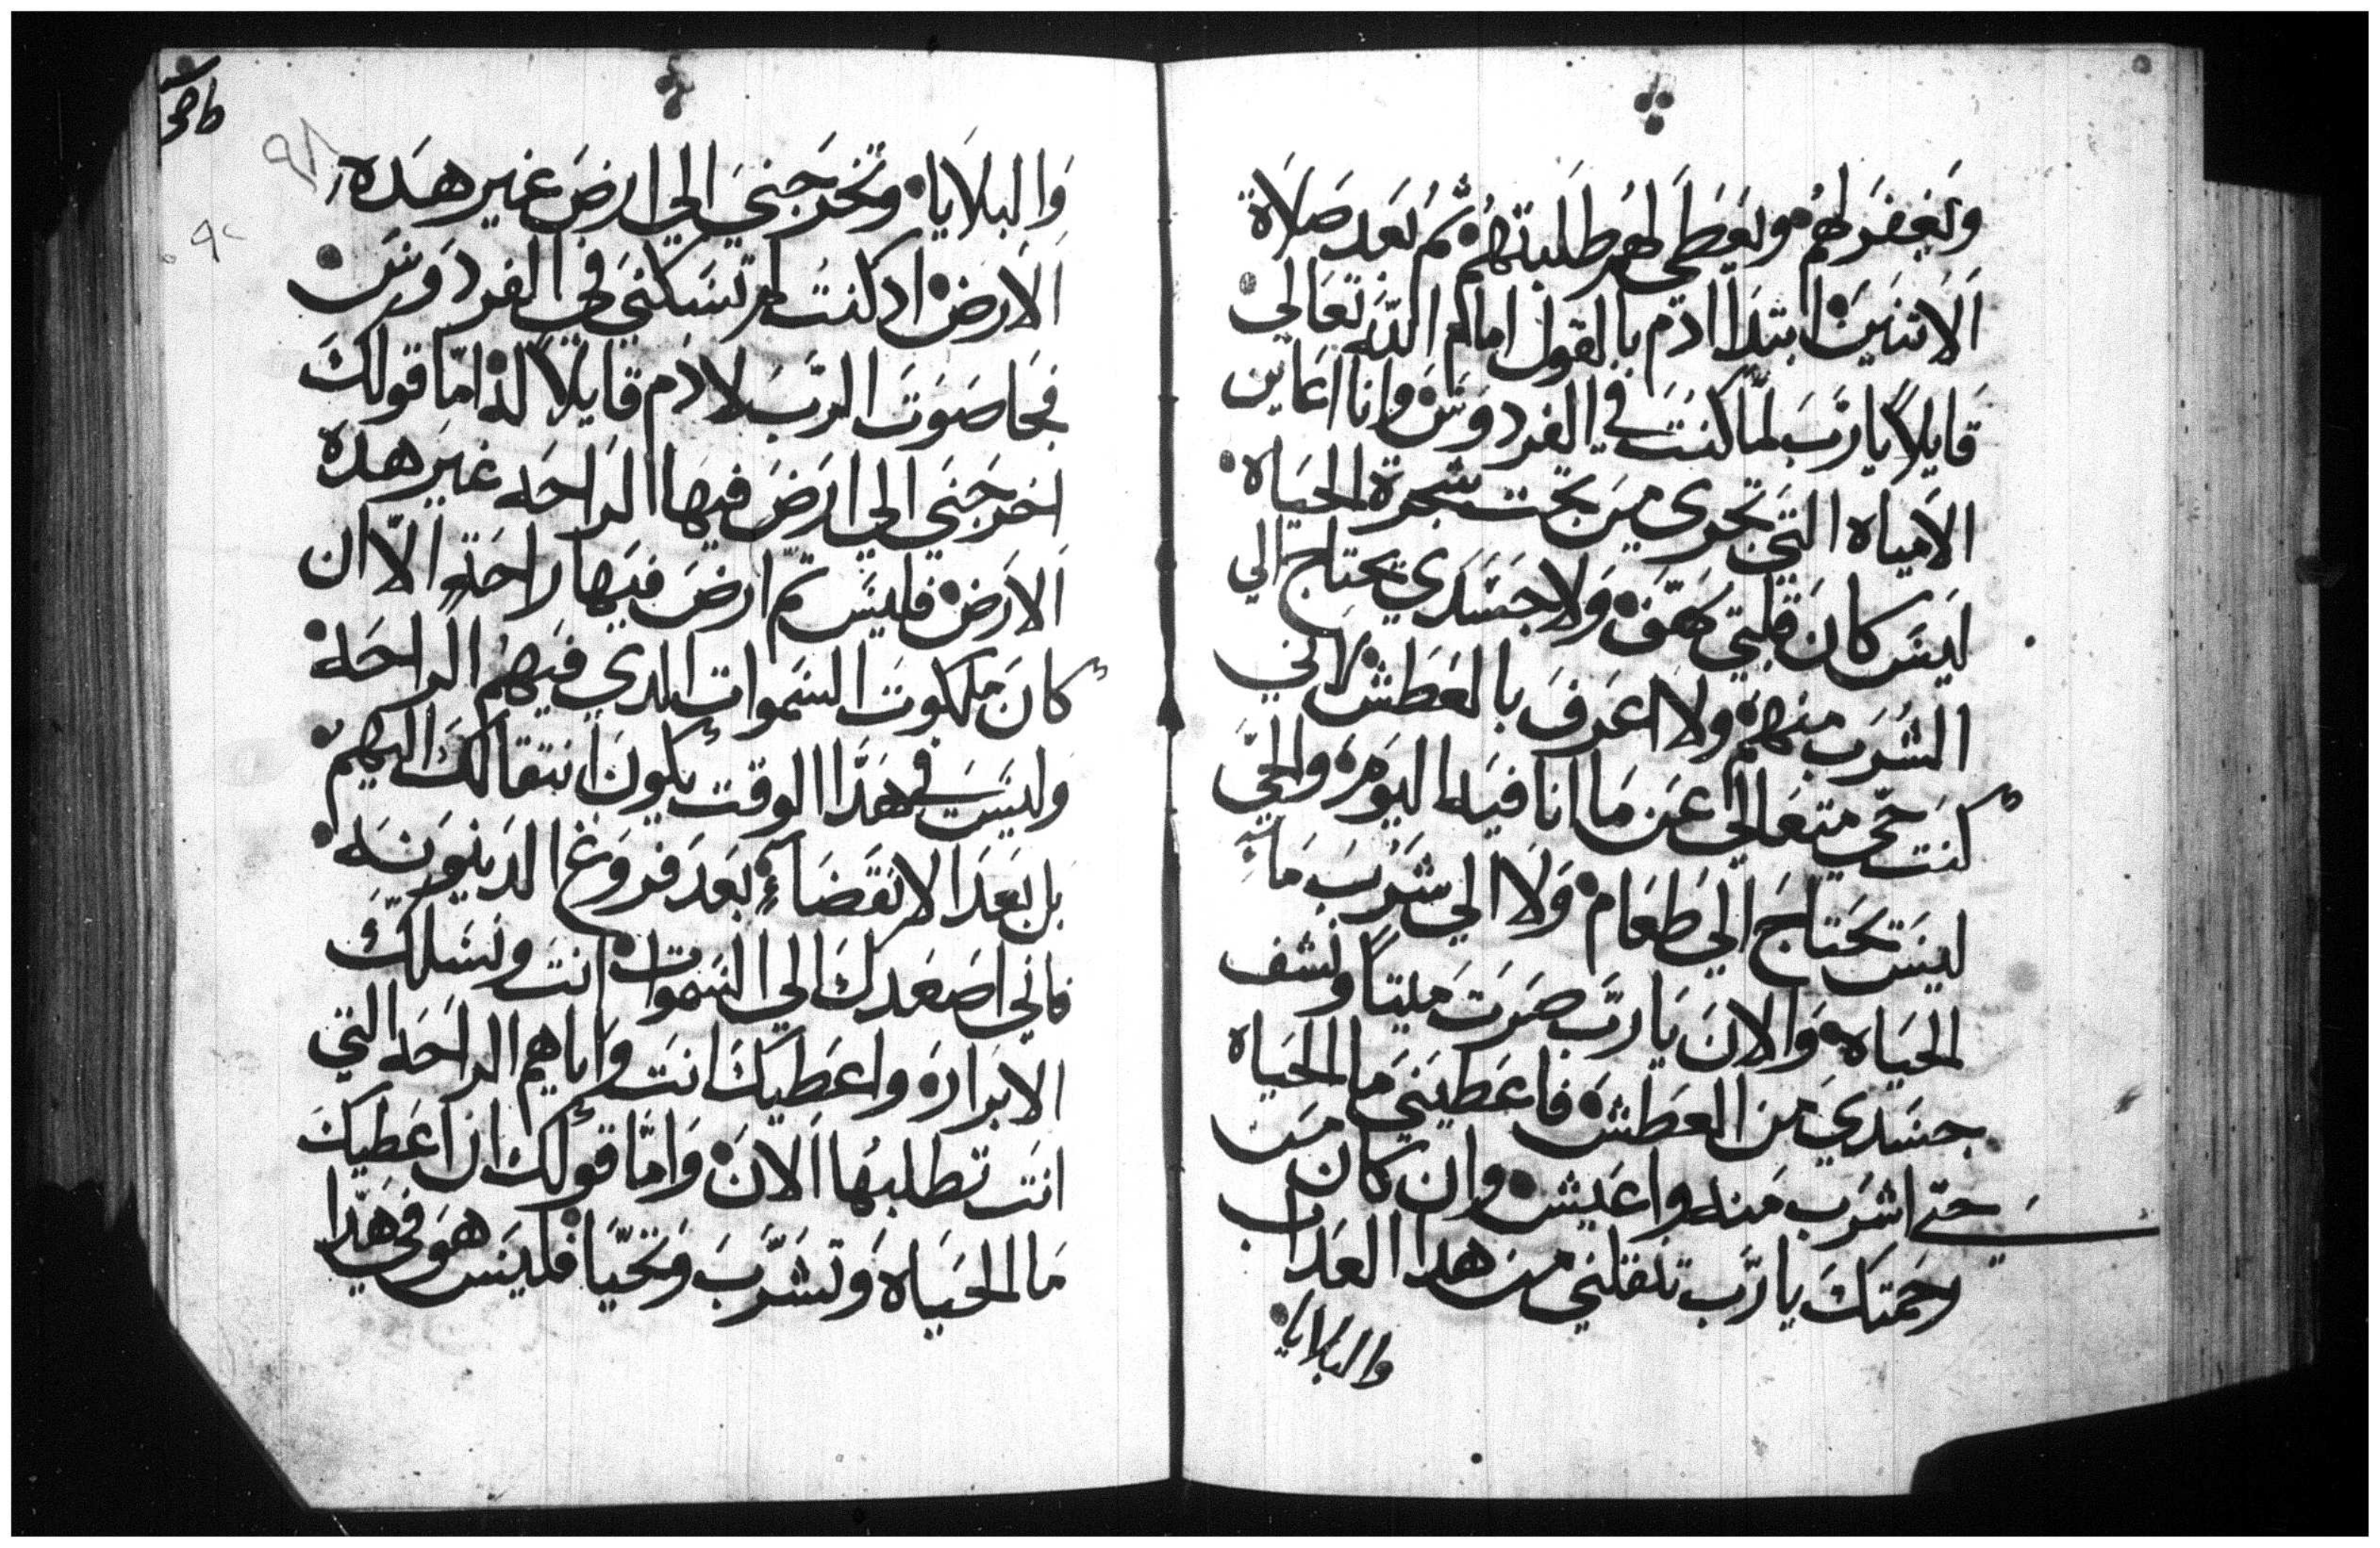 وتغفر لهم ويعطي لهم طلبتهم ثم بعد صلاة
الاثنين ابتدا ادم بالقول امام الله تعالي
قايلاً يا رب لما كنت في الفردوس وانا اعاين
الامياه التي تجري من تحت شجرة الحياه
ليس كان قلبي ولا جسدي يحتاج الي
الشرب منهم ولا اعرف بالعطش لاني
كنت حي متعالي عن ما انا فيه اليوم والحي
ليس يحتاج الي طعام ولا الي شرب ما
الحياه والان يا رب صرت ميتاً ونشف
جسدي من العطش فاعطيني ما الحياه
حتي اشرب منه واعيش وان كان من
رحمتك يا رب تنقلني من هدا العداب
والبلايا
والبلايا وتخرجني الي ارض غير هده
الارض اد كنت لم تسكني في الفردوس
فجا صوت الرب لادم قايلاً له اما قولك
اخرجني الي ارض فيها الراحه غير هده
الارض فليس تم ارض فيها راحة الا ان
كان ملكوت السموات الدي فيهم الراحه
وليس في هدا الوقت يكون انتقالك اليهم
بل بعد الانقضاء بعد فروغ الدينونه
فاني اصعدك الي السموات انت ونسلك
الابرار واعطيك انت واياهم الراحه التي
انت تطلبها الان واما قولك ان اعطيك
ما الحياه وتشرب وتحيا فليس هو في هدا